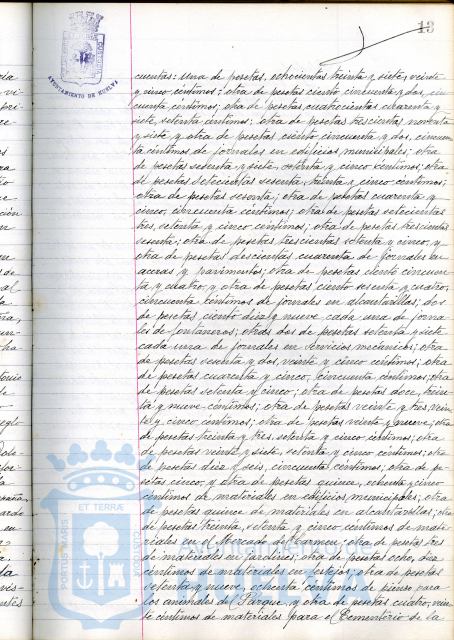 13
AYUNTAMIENTO DE HUELVA
cuentas: una de pesetas, ochocientas treinta y siete, veinte
y cinco céntimos; otra de pesetas ciento cincuenta y dos, cin
cuenta céntimos; otra de pesetas, cuatrocientas cuarenta y
siete, setenta céntimos; otra de pesetas trescientas noventa
y siete y otra de pesetas ciento cincuenta y dos, cincuen
ta céntimos de jornales en edificios municipales; otra
de pesetas sesenta y siete, setenta y cinco céntimos; otra
de pesetas setecientas sesenta, treinta y cinco céntimos;
otra de pesetas sesenta; otra de pesetas cuarenta y
cinco, cincuenta céntimos; otra de pesetas setecientas
tres, setenta y cinco céntimos; otra de pesetas trescientas
sesenta; otra de pesetas trescientas setenta y cinco, y
otra de pesetas doscientas cuarenta de jornales en
aceras y pavimentos; otra de pesetas ciento cincuen
ta y cuatro, y otra de pesetas ciento sesenta y cuatro,
cincuenta céntimos de jornales en alcantarillas; dos
de pesetas ciento diez y nueve cada una de jorna
les de fontaneros; otras dos de pesetas setenta y siete
cada una de jornales en servicios mecánicos; otra
de pesetas sesenta y dos, veinte y cinco céntimos; otra
de pesetas cuarenta y cinco, cincuenta céntimos; otra
de pesetas setenta y cinco; otra de pesetas doce, trein
ta y nueve céntimos; otra de pesetas veinte y tres, vein
te y cinco céntimos; otra de pesetas veinte y nueve; otra
de pesetas treinta y tres, setenta y cinco céntimos; otra
de pesetas veinte y siete, setenta y cinco céntimos; otra
de pesetas diez y seis, cincuenta céntimos; otra de pe
setas cinco, y otra de pesetas quince, ochenta y cinco
céntimos de materiales en edificios municipales; otra
de pesetas quince de materiales en alcantarillas; otra
de pesetas treinta, setenta y cinco céntimos de mate
riales en el Mercado del Carmen; otra de pesetas tres
de materiales en jardines; otra de pesetas ocho, diez
céntimos de materiales en festejos; otra de pesetas
setenta y nueve, ochenta céntimos de pienso para
los animales del Parque, y otra de pesetas cuatro, vein
te céntimos de materiales para el Cementerio de la
ET TERRÆ
PORTUS MARIS
CUSTODIA